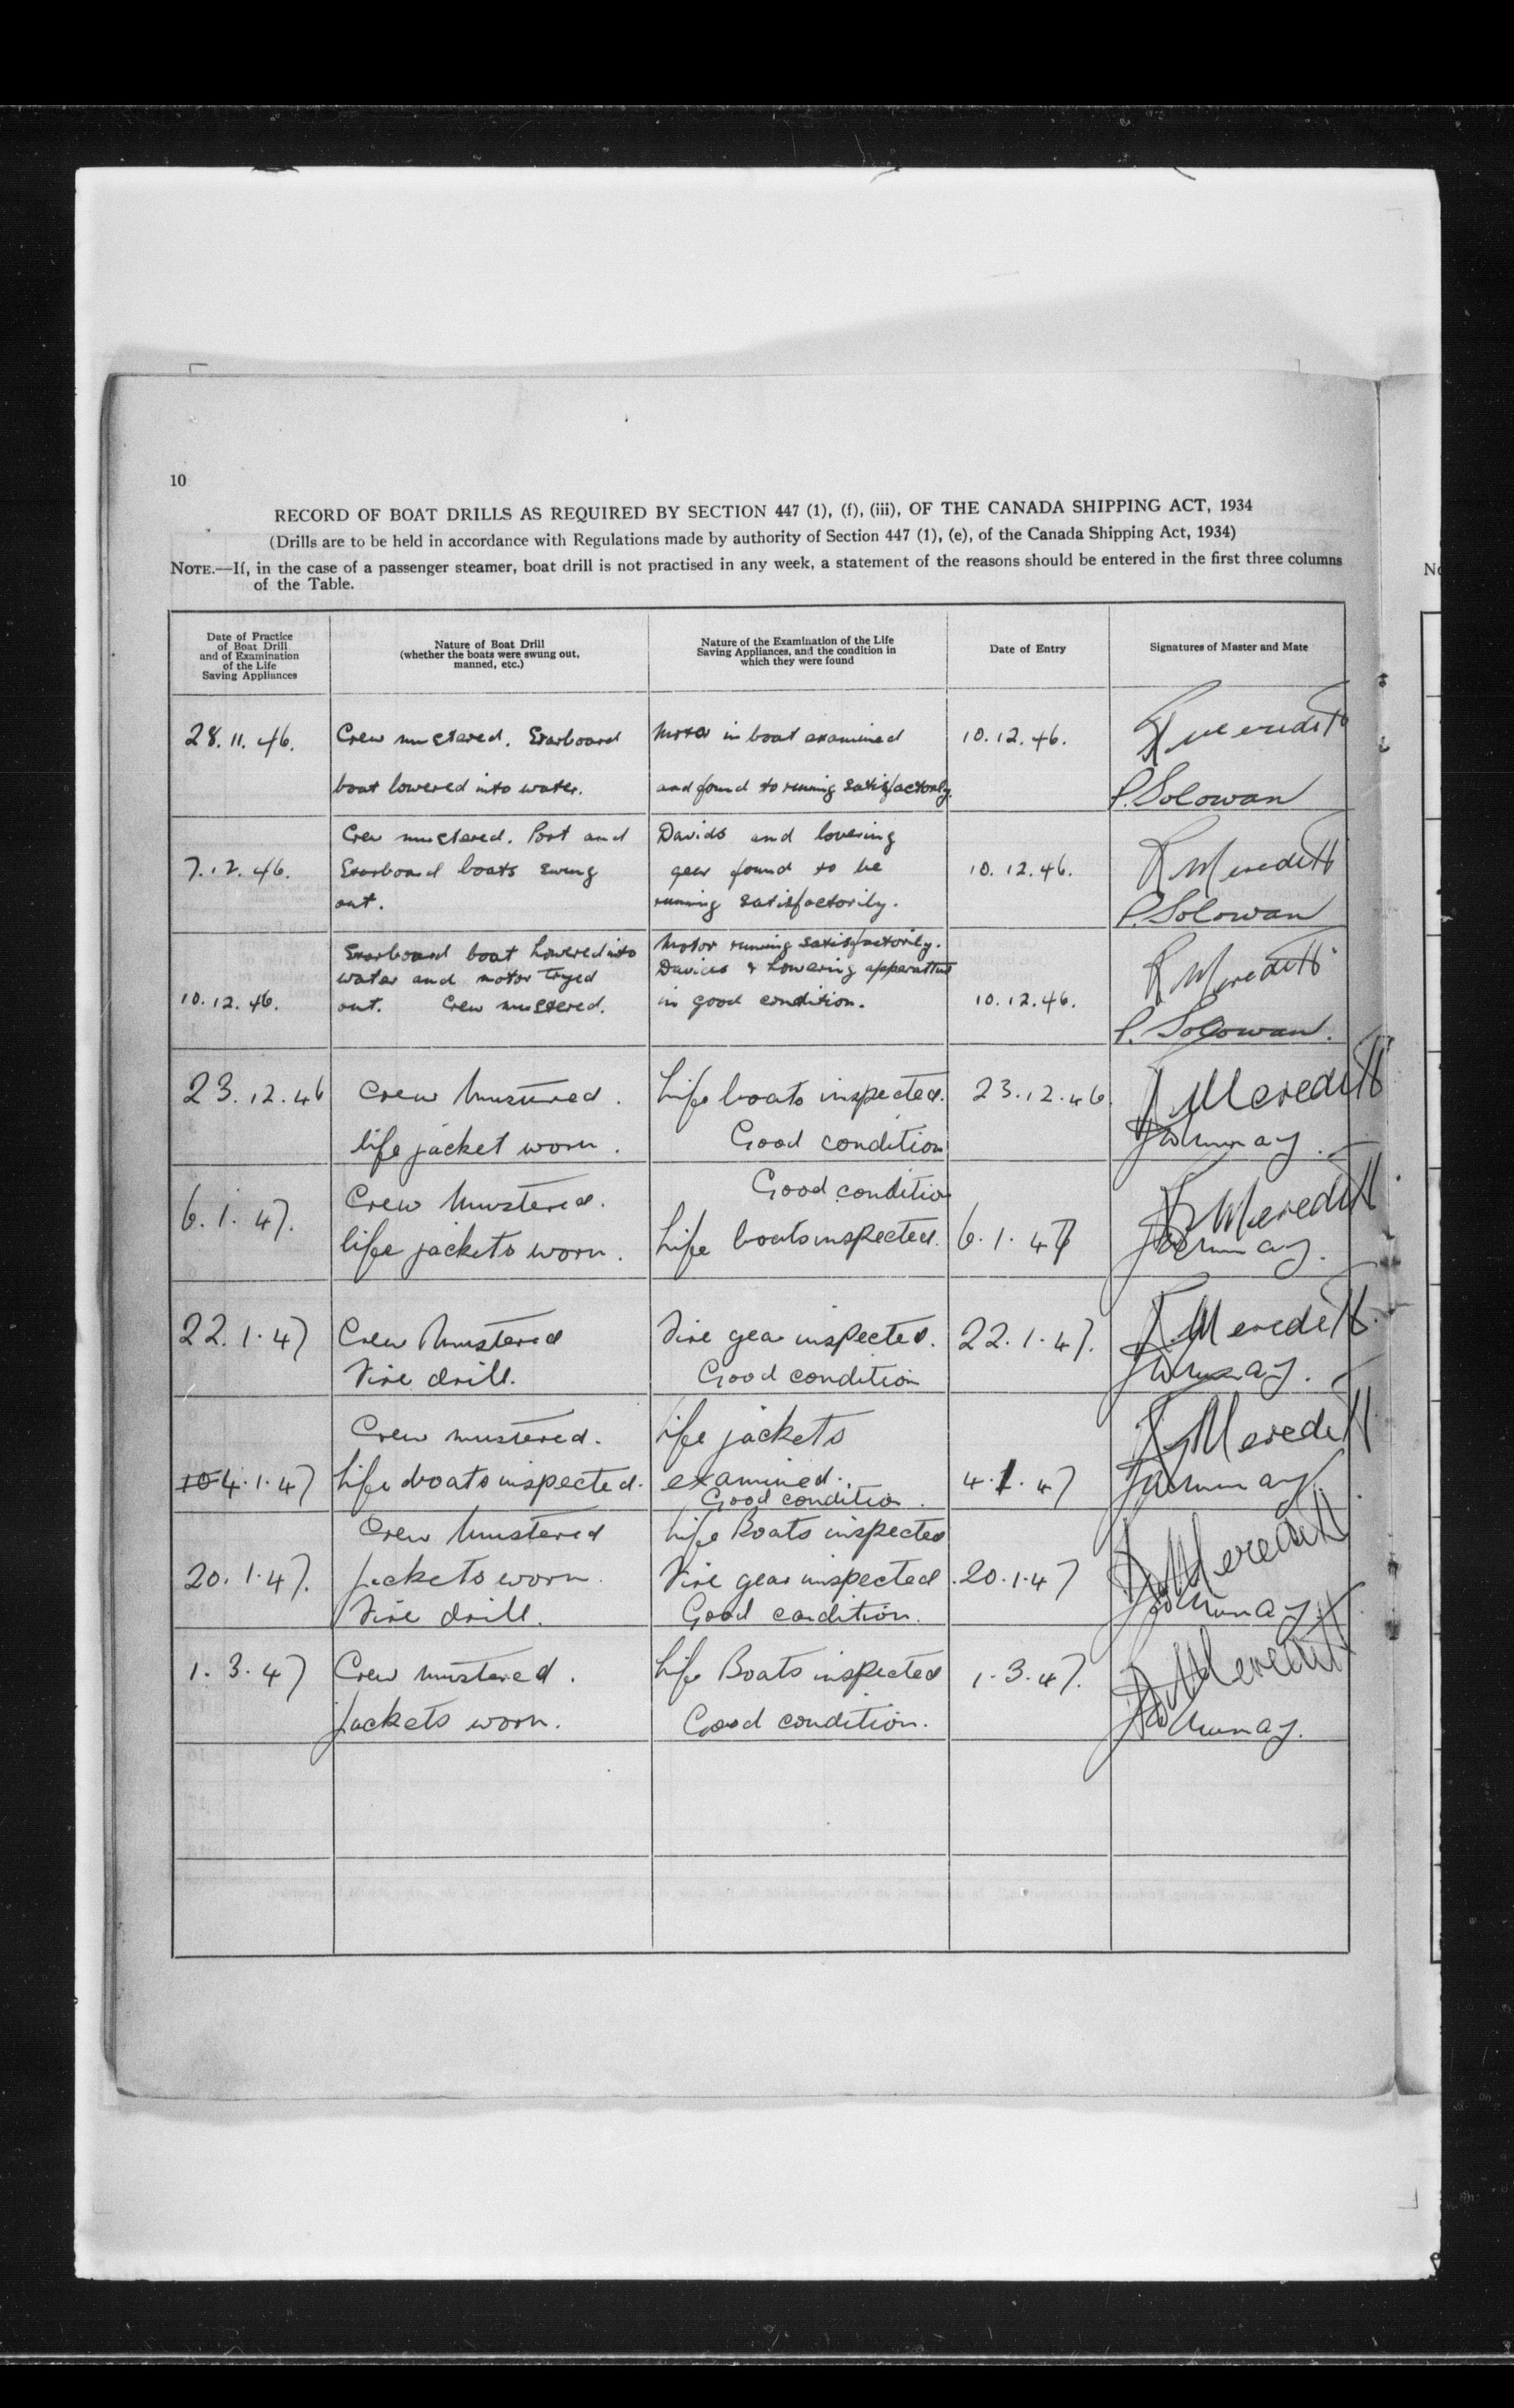 10
RECORD OF BOAT DRILLS AS REQUIRED BY SECTION 447 (1), (f), (iii), OF THE CANADA SHIPPING ACT, 1934
(Drills are to be held in accordance with Regulations made by authority of Section 447 (1), (e), of the Canada Shipping Act, 1934)
NOTE.—If, in the case of a passenger steamer, boat drill is not practised in any week, a statement of the reasons should be entered in the first three columns
of the Table.
Date of Practice
of Boat Drill
and of Examination
of the Life
Saving Appliances
Nature of Boat Drill
(whether the boats were swung out,
manned, etc.)
Nature of the Examination of the Life
Saving Appliances, and the condition in
which they were found
Date of Entry
Signatures of Master and Mate
28.11.46.
Crew mustered. Starboard
boat lowered into water.
Motor in boat examined
and found to running satisfactorily
10.12.46.
R Meredith
P. Solowan
7.12.46.
Crew mustered. Port and
Starboard boats swung
out.
Davids and lovering
gear found to be
running satisfactorily.
10.12.46.
R Meredith
P. Solowan
10.12.46.
Starboard boat Lowered into
water and motor tryed
out. Crew mustered.
Motor running satisfactorily.
Davids & Lowering apparattus
in good condition.
10.12.46.
R Meredith
P. Solowan.
23.12.46
Crew Mustered.
life jacket worn.
Life boats inspected.
Good condition
23.12.46.
R Meredith
6.1.47.
Crew Mustered.
life jackets worn.
Good conditio
Life boats inspected.
6.1.47
R Meredith
22.1.47
Crew Mustered
Fire drill.
Fire gear inspected.
Good condition
22.1.47.
R Meredith
10 4.1.47
Crew mustered.
Life boats inspected.
Life jackets
examined.
Good conditio.
4.1.47
R Meredith
20.1.47.
Crew Mustered
Jackets worn.
Fire drill.
Life Boats inspected
Fire gear inspected.
Good condition.
20.1.47
R Meredith
1.3.47
Crew mustered.
Jackets worn.
Life Boats inspected
Good condition.
1.3.47.
R Meredith